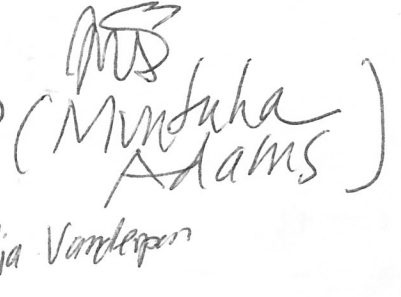 MS
(Muntaha
Adams)
ja Vanderpon